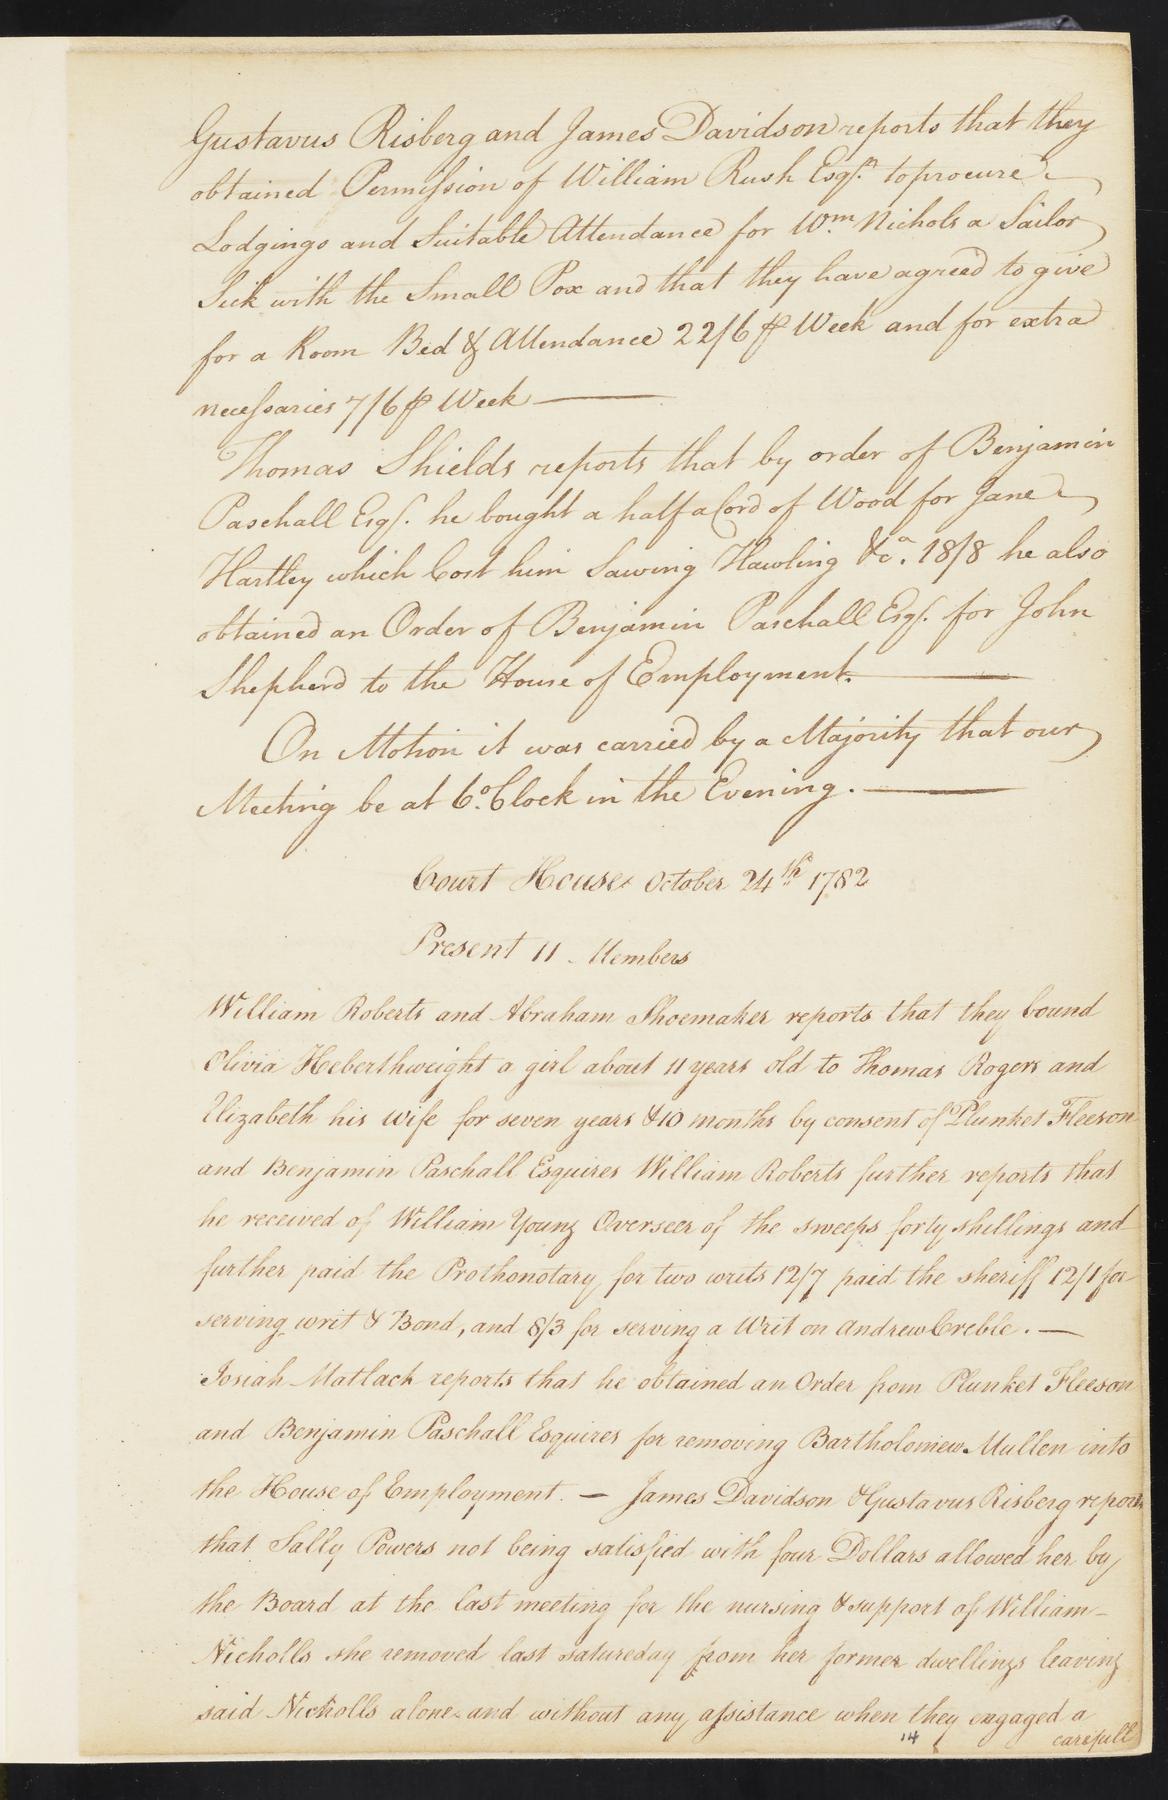 Gustavus Risberg and James Davidson reports that they
obtained Permission of William Rush Esqr. to procure
Lodgings and Suitable Attendance for Wm. Nichols a Sailor
Sick with the Small Pox and that they have agreed to give
for a Room Bed & Attendance 22/6 ⅌ Week and for extra
necessaries 7/6 ⅌ Week
Thomas Shields reports that by order of Benjamin
Paschall Esqr. he bought a half a Cord of Wood for Jane
Hartley which Cost him Sawing Hawling &ca. 18/8 he also
obtained an Order of Benjamin Paschall Esqr. for John
Shepherd to the House of Employment.
On Motion it was carried by a Majority that our
Meeting be at 6 oClock in the Evening.
Court House October 24th 1782
Present 11 Members
William Roberts and Abraham Shoemaker reports that they bound
Olivia Heberthweight a girl about 11 years old to Thomas Rogers and
Elizabeth his wife for seven years & 10 months by consent of Plunket Fleeson
and Benjamin Paschall Esquires William Roberts further reports that
he received of William Young Overseer of the sweeps forty shillings and
further paid the Prothonotary for two writs 12/7 paid the sheriff 12/1 for
serving writ & Bond, and 8/3 for serving a Writ on Andrew Creble. —
Josiah Matlack reports that he obtained an Order from Plunket Fleeson
and Benjamin Paschall Esquires for removing Bartholomew Mullen into
the House of Employment. — James Davidson & Gustavus Risberg reports
that Sally Powers not being satisfied with four Dollars allowed her by
the Board at the last meeting for the nursing & support of William
Nicholls she removed last satureday from her former dwellings leaving
said Nicholls alone and without any assistance when they engaged a
14 carefull